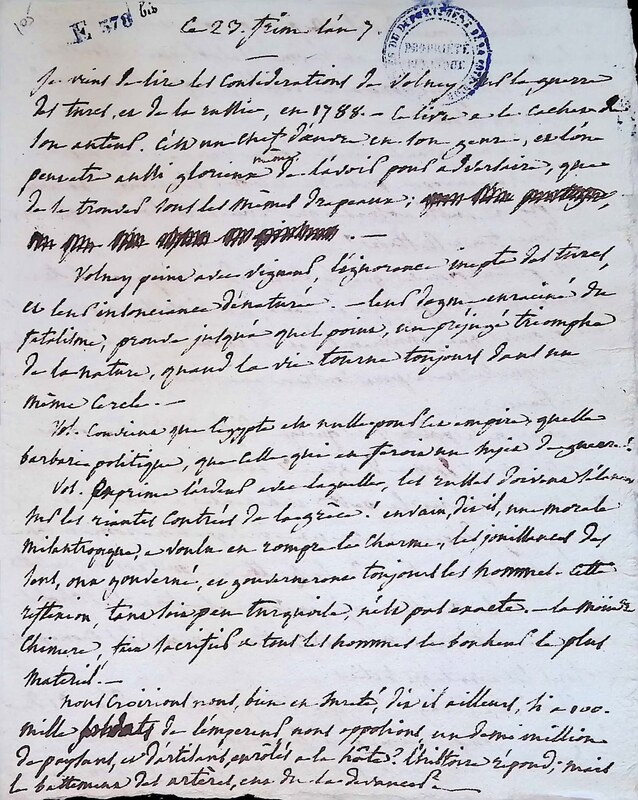 105
E 378 bis
ce 23. frim. l'an 7.
DU DÉPARTEMENT DE LA
PROPRIÉTÉ
PUBLIQUE
Je viens de lire les Considérations de Volney sur la guerre
des turcs, et de la russie, en 1788. — Ce livre a le cachet de
son auteur. C'est un chef d'œuvre en son genre, et l'on
peut être aussi glorieux de l'avoir pour adversaire, que
même
de se trouver sous les mêmes drapeaux;
Volney peint avec vigueur, l'ignorance inepte des turcs,
et leur insouciance dénaturée. — leur dogme enraciné du
fatalisme, prouve jusqu'à quel point, un préjugé triomphe
de la nature, quand la vie tourne toujours dans un
même cercle. —
Vol. convient que l'égypte est nulle pour cet empire, quelle
barbarie politique, que celle qui en feroit un sujet de guerre!
Vol. exprime l'ardeur avec laquelle, les russes doivent s'élancer
sur les riantes contrées de la grèce! en vain, dit-il, une morale
misantropique, a voulu en rompre le charme, les jouissances des
sens, ont gouverné, et gouverneront toujours les hommes. Cette
réflexion, tant soit peu turquoise, n'est pas exacte. — la moindre
chimère, fait sacrifier à tous les hommes le bonheur le plus
matériel. —
nous croirions nous, bien en sureté, dit il ailleurs, si 200.
mille soldats de l'empereur nous opposions, un demi million
de paysans, et d'artisans, enrôlés à la hâte? l'histoire répond; mais
le battement des artères, eut du la devancer. —